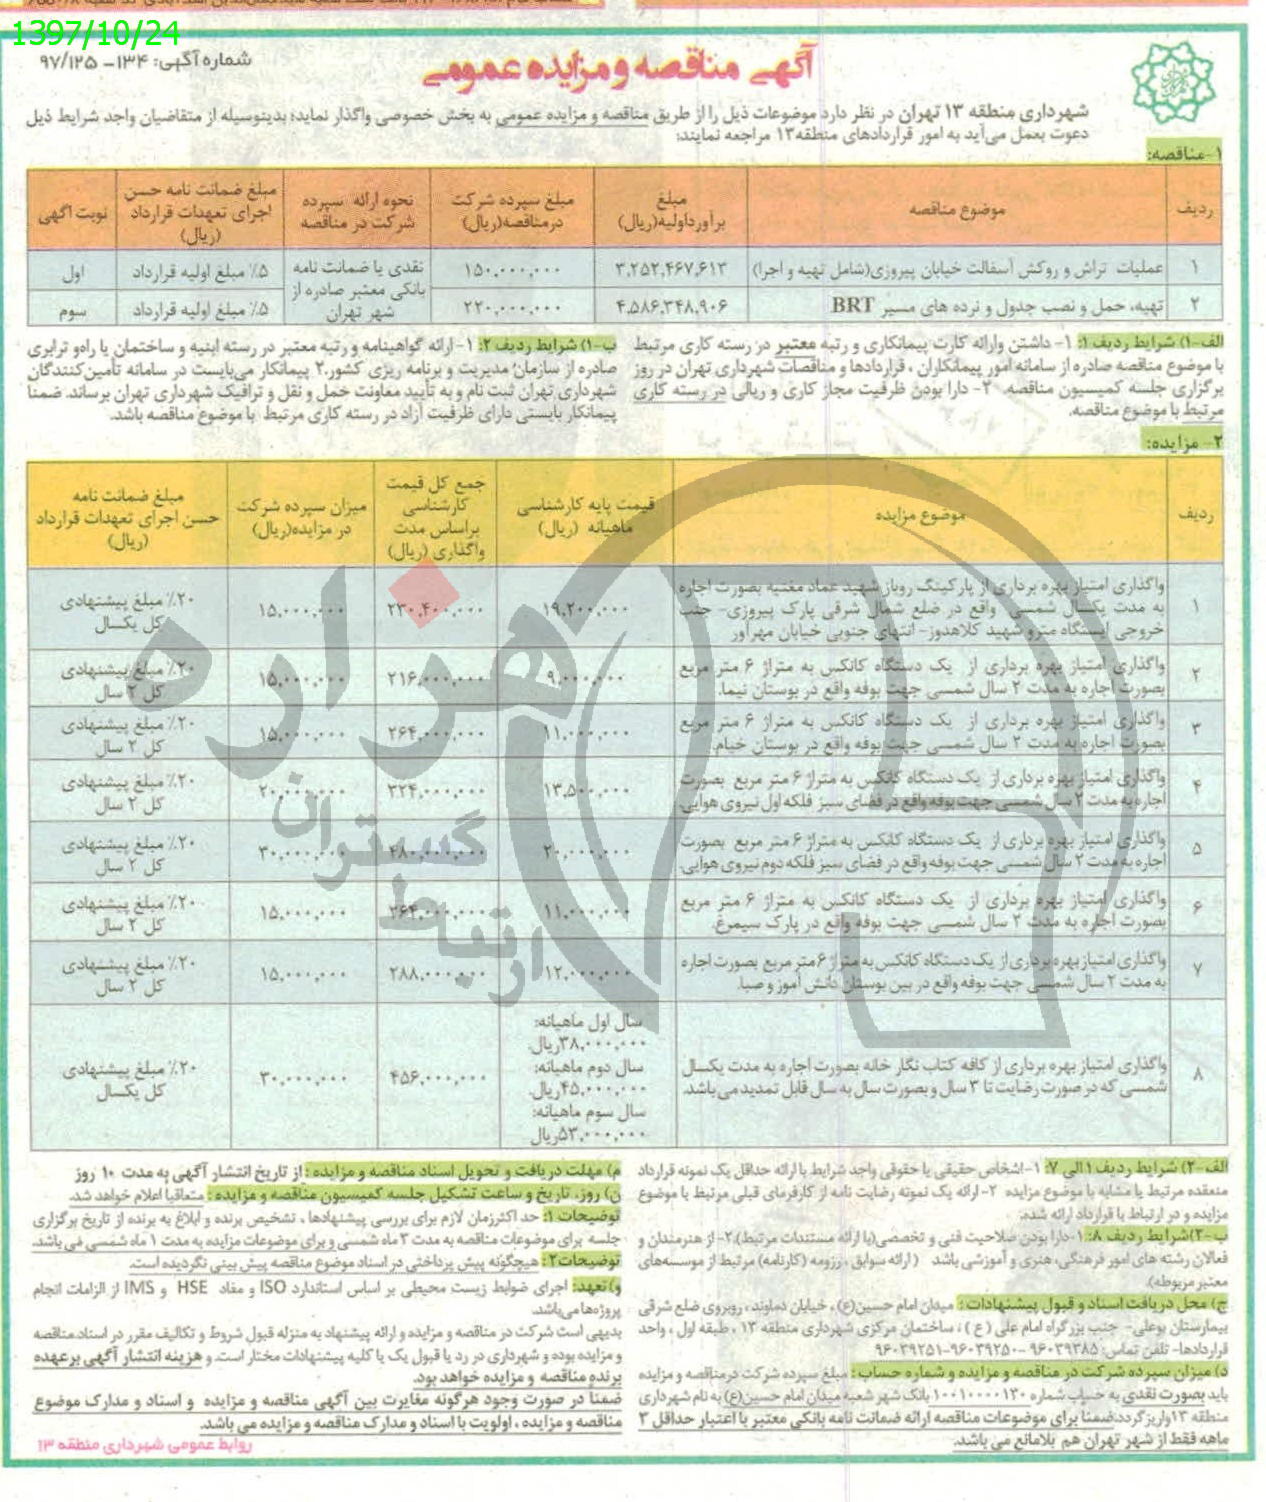 1397/10/24
شماره آگهی: ۱۳۴- ۹۷/۱۲۵
آگهی مناقصه و مزایده عمومی
شهرداری منطقه ۱۳ تهران در نظر دارد موضوعات ذیل را از طریق مناقصه و مزایده عمومی به بخش خصوصی واگذار نماید؛ بدینوسیله از متقاضیان واجد شرایط ذیل
دعوت بعمل می‌آید به امور قراردادهای منطقه۱۳ مراجعه نمایند:
۱-مناقصه:
ردیف موضوع مناقصه مبلغ برآورداولیه(ریال) مبلغ سپرده شرکت درمناقصه(ریال) نحوه ارائه سپرده شرکت در مناقصه مبلغ ضمانت نامه حسن اجرای تعهدات قرارداد (ریال) نوبت آگهی
۱ عملیات تراش و روکش آسفالت خیابان پیروزی(شامل تهیه و اجرا) ۳,۲۵۲,۴۶۷,۶۱۳ ۱۵۰,۰۰۰,۰۰۰ نقدی یا ضمانت نامه بانکی معتبر صادره از شهر تهران ۵٪ مبلغ اولیه قرارداد اول
۲ تهیه، حمل و نصب جدول و نرده های مسیر BRT ۴,۵۸۶,۳۴۸,۹۰۶ ۲۲۰,۰۰۰,۰۰۰ ۵٪ مبلغ اولیه قرارداد سوم
الف-۱) شرایط ردیف ۱: ۱- داشتن وارائه کارت پیمانکاری و رتبه معتبر در رسته کاری مرتبط
با موضوع مناقصه صادره از سامانه امور پیمانکاران ، قراردادها و مناقصات شهرداری تهران در روز
برگزاری جلسه کمیسیون مناقصه. ۲- دارا بودن ظرفیت مجاز کاری و ریالی در رسته کاری
مرتبط با موضوع مناقصه.
ب-۱) شرایط ردیف ۲: ۱- ارائه گواهینامه و رتبه معتبر در رسته ابنیه و ساختمان یا راه‌و ترابری
صادره از سازمان مدیریت و برنامه ریزی کشور.۲ پیمانکار می‌بایست در سامانه تأمین‌کنندگان
شهرداری تهران ثبت نام و به تأیید معاونت حمل و نقل و ترافیک شهرداری تهران برساند. ضمنا
پیمانکار بایستی دارای ظرفیت آزاد در رسته کاری مرتبط با موضوع مناقصه باشد.
۲- مزایده:
ردیف موضوع مزایده قیمت پایه کارشناسی ماهیانه (ریال) جمع کل قیمت کارشناسی براساس مدت واگذاری (ریال) میزان سپرده شرکت در مزایده(ریال) مبلغ ضمانت نامه حسن اجرای تعهدات قرارداد (ریال)
۱ واگذاری امتیاز بهره برداری از پارکینگ روباز شهید عماد مغنیه بصورت اجاره
به مدت یکسال شمسی واقع در ضلع شمال شرقی پارک پیروزی- جنب
خروجی ایستگاه مترو شهید کلاهدوز- انتهای جنوبی خیابان مهرآور ۱۹,۲۰۰,۰۰۰ ۲۳۰,۴۰۰,۰۰۰ ۱۵,۰۰۰,۰۰۰ ۲۰٪ مبلغ پیشنهادی کل یکسال
۲ واگذاری امتیاز بهره برداری از یک دستگاه کانکس به متراژ ۶ متر مربع
بصورت اجاره به مدت ۲ سال شمسی جهت بوفه واقع در بوستان نیما. ۹,۰۰۰,۰۰۰ ۲۱۶,۰۰۰,۰۰۰ ۱۵,۰۰۰,۰۰۰ ۲۰٪ مبلغ پیشنهادی کل ۲ سال
۳ واگذاری امتیاز بهره برداری از یک دستگاه کانکس به متراژ ۶ متر مربع
بصورت اجاره به مدت ۲ سال شمسی جهت بوفه واقع در بوستان خیام. ۱۱,۰۰۰,۰۰۰ ۲۶۴,۰۰۰,۰۰۰ ۱۵,۰۰۰,۰۰۰ ۲۰٪ مبلغ پیشنهادی کل ۲ سال
۴ واگذاری امتیاز بهره برداری از یک دستگاه کانکس به متراژ ۶ متر مربع بصورت
اجاره به مدت ۲ سال شمسی جهت بوفه واقع در فضای سبز فلکه اول نیروی هوایی. ۱۳,۵۰۰,۰۰۰ ۳۲۴,۰۰۰,۰۰۰ ۲۰,۰۰۰,۰۰۰ ۲۰٪ مبلغ پیشنهادی کل ۲ سال
۵ واگذاری امتیاز بهره برداری از یک دستگاه کانکس به متراژ ۶ متر مربع بصورت
اجاره به مدت ۲ سال شمسی جهت بوفه واقع در فضای سبز فلکه دوم نیروی هوایی. ۲۰,۰۰۰,۰۰۰ ۴۸۰,۰۰۰,۰۰۰ ۳۰,۰۰۰,۰۰۰ ۲۰٪ مبلغ پیشنهادی کل ۲ سال
۶ واگذاری امتیاز بهره برداری از یک دستگاه کانکس به متراژ ۶ متر مربع
بصورت اجاره به مدت ۲ سال شمسی جهت بوفه واقع در پارک سیمرغ. ۱۱,۰۰۰,۰۰۰ ۲۶۴,۰۰۰,۰۰۰ ۱۵,۰۰۰,۰۰۰ ۲۰٪ مبلغ پیشنهادی کل ۲ سال
۷ واگذاری امتیاز بهره برداری از یک دستگاه کانکس به متراژ ۶ متر مربع بصورت اجاره
به مدت ۲ سال شمسی جهت بوفه واقع در بین بوستان دانش آموز و صبا. ۱۲,۰۰۰,۰۰۰ ۲۸۸,۰۰۰,۰۰۰ ۱۵,۰۰۰,۰۰۰ ۲۰٪ مبلغ پیشنهادی کل ۲ سال
۸ واگذاری امتیاز بهره برداری از کافه کتاب نگار خانه بصورت اجاره به مدت یکسال
شمسی که در صورت رضایت تا ۳ سال و بصورت سال به سال قابل تمدید می باشد. سال اول ماهیانه: ۳۸,۰۰۰,۰۰۰ریال. سال دوم ماهیانه: ۴۵,۰۰۰,۰۰۰ریال. سال سوم ماهیانه: ۵۳,۰۰۰,۰۰۰ریال ۴۵۶,۰۰۰,۰۰۰ ۳۰,۰۰۰,۰۰۰ ۲۰٪ مبلغ پیشنهادی کل یکسال
الف-۲) شرایط ردیف ۱ الی ۷: ۱-اشخاص حقیقی یا حقوقی واجد شرایط با ارائه حداقل یک نمونه قرارداد
منعقده مرتبط یا مشابه با موضوع مزایده ۲- ارائه یک نمونه رضایت نامه از کارفرمای قبلی مرتبط با موضوع
مزایده و در ارتباط با قرارداد ارائه شده.
ب-۲)شرایط ردیف ۸: ۱-دارا بودن صلاحیت فنی و تخصصی(با ارائه مستندات مرتبط).۲- از هنرمندان و
فعالان رشته های امور فرهنگی، هنری و آموزشی باشد (ارائه سوابق ، رزومه (کارنامه) مرتبط از موسسه‌های
معتبر مربوطه).
ج) محل دریافت اسناد و قبول پیشنهادات : میدان امام حسین(ع) ، خیابان دماوند ، روبروی ضلع شرقی
بیمارستان بوعلی- جنب بزرگراه امام علی ( ع ) ، ساختمان مرکزی شهرداری منطقه ۱۳ ، طبقه اول ، واحد
قراردادها- تلفن تماس: ۹۶۰۳۹۳۸۵ -۹۶۰۳۹۲۵۰-۹۶۰۳۹۲۵۱
د) میزان سپرده شرکت در مناقصه و مزایده و شماره حساب : مبلغ سپرده شرکت درمناقصه و مزایده
باید بصورت نقدی به حساب شماره ۱۰۰۱۰۰۰۰۱۳۰ بانک شهر شعبه میدان امام حسین(ع) به نام شهرداری
منطقه ۱۳واریز گردد.ضمنا برای موضوعات مناقصه ارائه ضمانت نامه بانکی معتبر با اعتبار حداقل ۳
ماهه فقط از شهر تهران هم بلامانع می باشد.
م) مهلت دریافت و تحویل اسناد مناقصه و مزایده : از تاریخ انتشار آگهی به مدت ۱۰ روز
ن) روز، تاریخ و ساعت تشکیل جلسه کمیسیون مناقصه و مزایده : متعاقبا اعلام خواهد شد.
توضیحات ۱: حد اکثرزمان لازم برای بررسی پیشنهادها ، تشخیص برنده و ابلاغ به برنده از تاریخ برگزاری
جلسه برای موضوعات مناقصه به مدت ۳ ماه شمسی و برای موضوعات مزایده به مدت ۱ ماه شمسی می باشد.
توضیحات۲: هیچگونه پیش پرداختی در اسناد موضوع مناقصه پیش بینی نگردیده است.
و)تعهد: اجرای ضوابط زیست محیطی بر اساس استاندارد ISO و مفاد HSE و IMS از الزامات انجام
پروژه‌ها می‌باشد.
بدیهی است شرکت در مناقصه و مزایده و ارائه پیشنهاد به منزله قبول شروط و تکالیف مقرر در اسناد مناقصه
و مزایده بوده و شهرداری در رد یا قبول یک یا کلیه پیشنهادات مختار است. و هزینه انتشار آگهی برعهده
برنده مناقصه و مزایده خواهد بود.
ضمنا در صورت وجود هرگونه مغایرت بین آگهی مناقصه و مزایده و اسناد و مدارک موضوع
مناقصه و مزایده ، اولویت با اسناد و مدارک مناقصه و مزایده می باشد.
روابط عمومی شهرداری منطقه ۱۳
هزاره
گستران
ارتباط